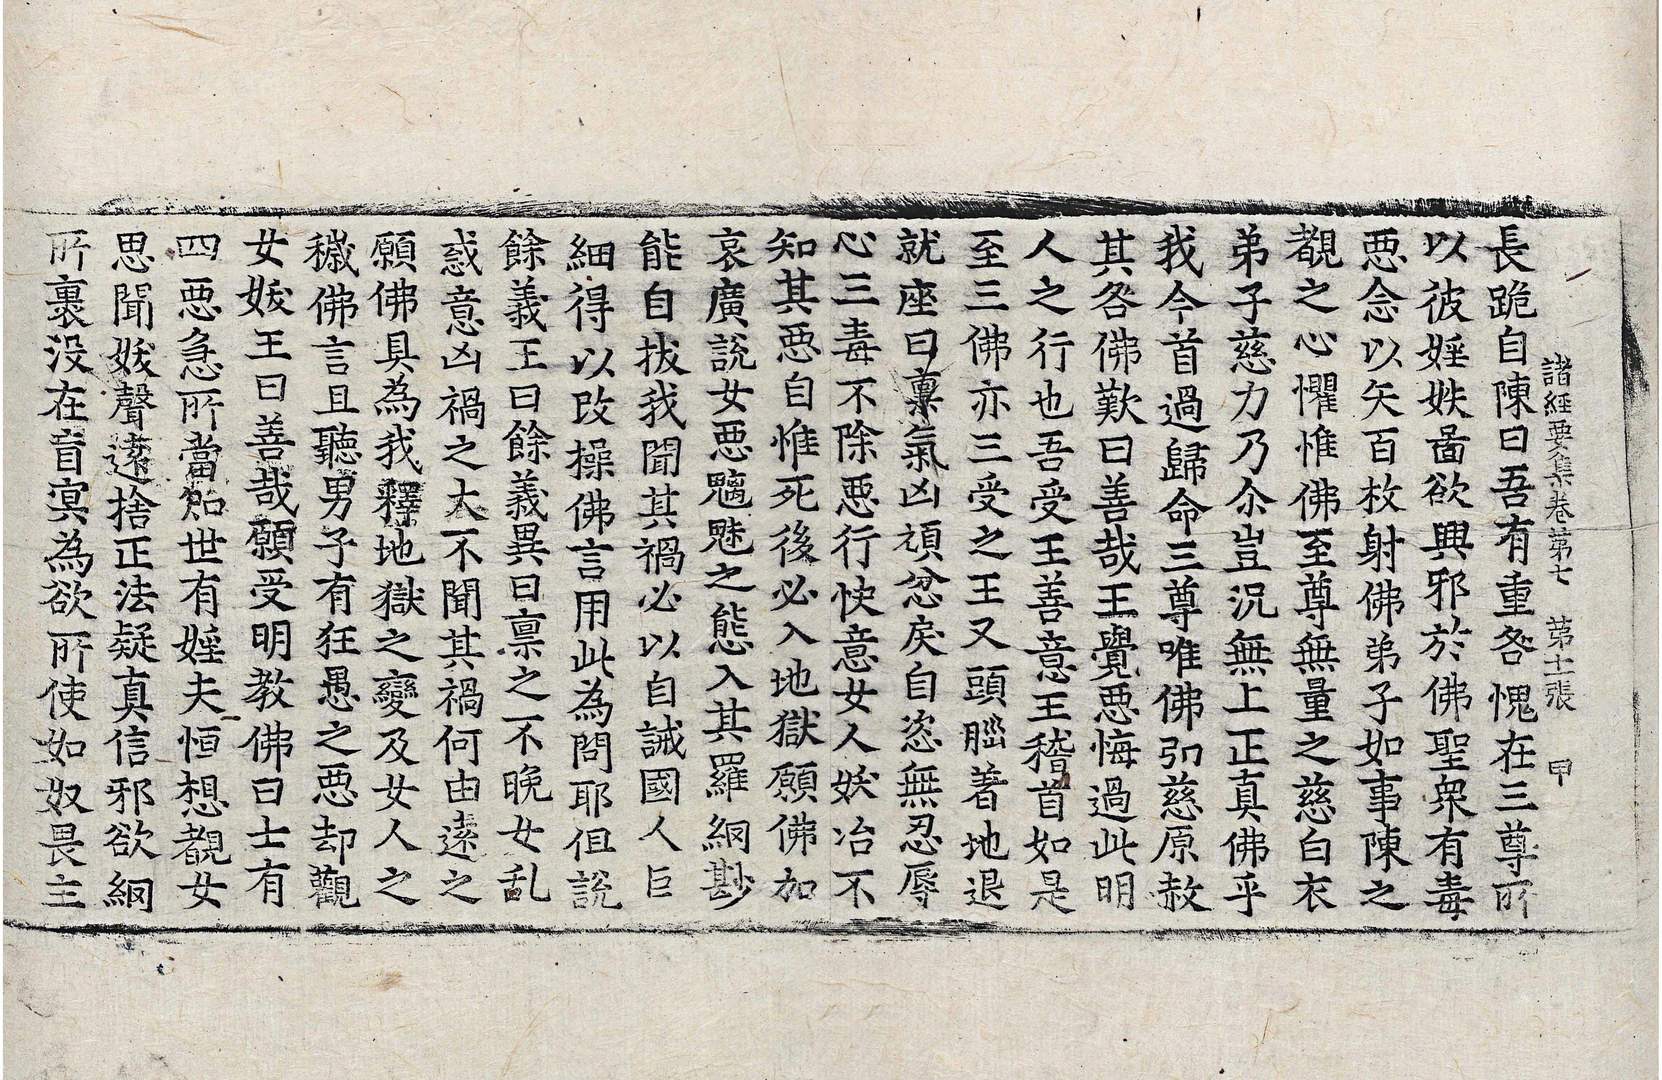 諸經要集卷第七 第十二張 甲
長跪自陳曰吾有重咎愧在三尊所
以彼婬妷啚欲興邪於佛聖衆有毒
惡念以矢百枚射佛弟子如事陳之
覩之心懼惟佛至尊無量之慈白衣
弟子慈力乃尒豈況無上正真佛乎
我今首過歸命三尊唯佛弘慈原赦
其咎佛歎曰善哉王覺惡悔過此明
人之行也吾受王善意王稽首如是
至三佛亦三受之王又頭腦著地退
就座曰禀氣凶頑忿戾自恣無忍辱
心三毒不除惡行快意女人妖冶不
知其惡自惟死後必入地獄願佛加
哀廣說女惡魑魅之態入其羅網尠
能自拔我聞其禍必以自誡國人巨
細得以改操佛言用此為問耶但說
餘義王曰餘義異日禀之不晚女乱
惑意凶禍之大不聞其禍何由遠之
願佛具為我釋地獄之變及女人之
穢佛言且聽男子有狂愚之惡却觀
女妖王曰善哉願受明教佛曰士有
四惡急所當知世有婬夫恒想覩女
思聞妖聲遠捨正法疑真信邪欲網
所裹没在盲冥為欲所使如奴畏主